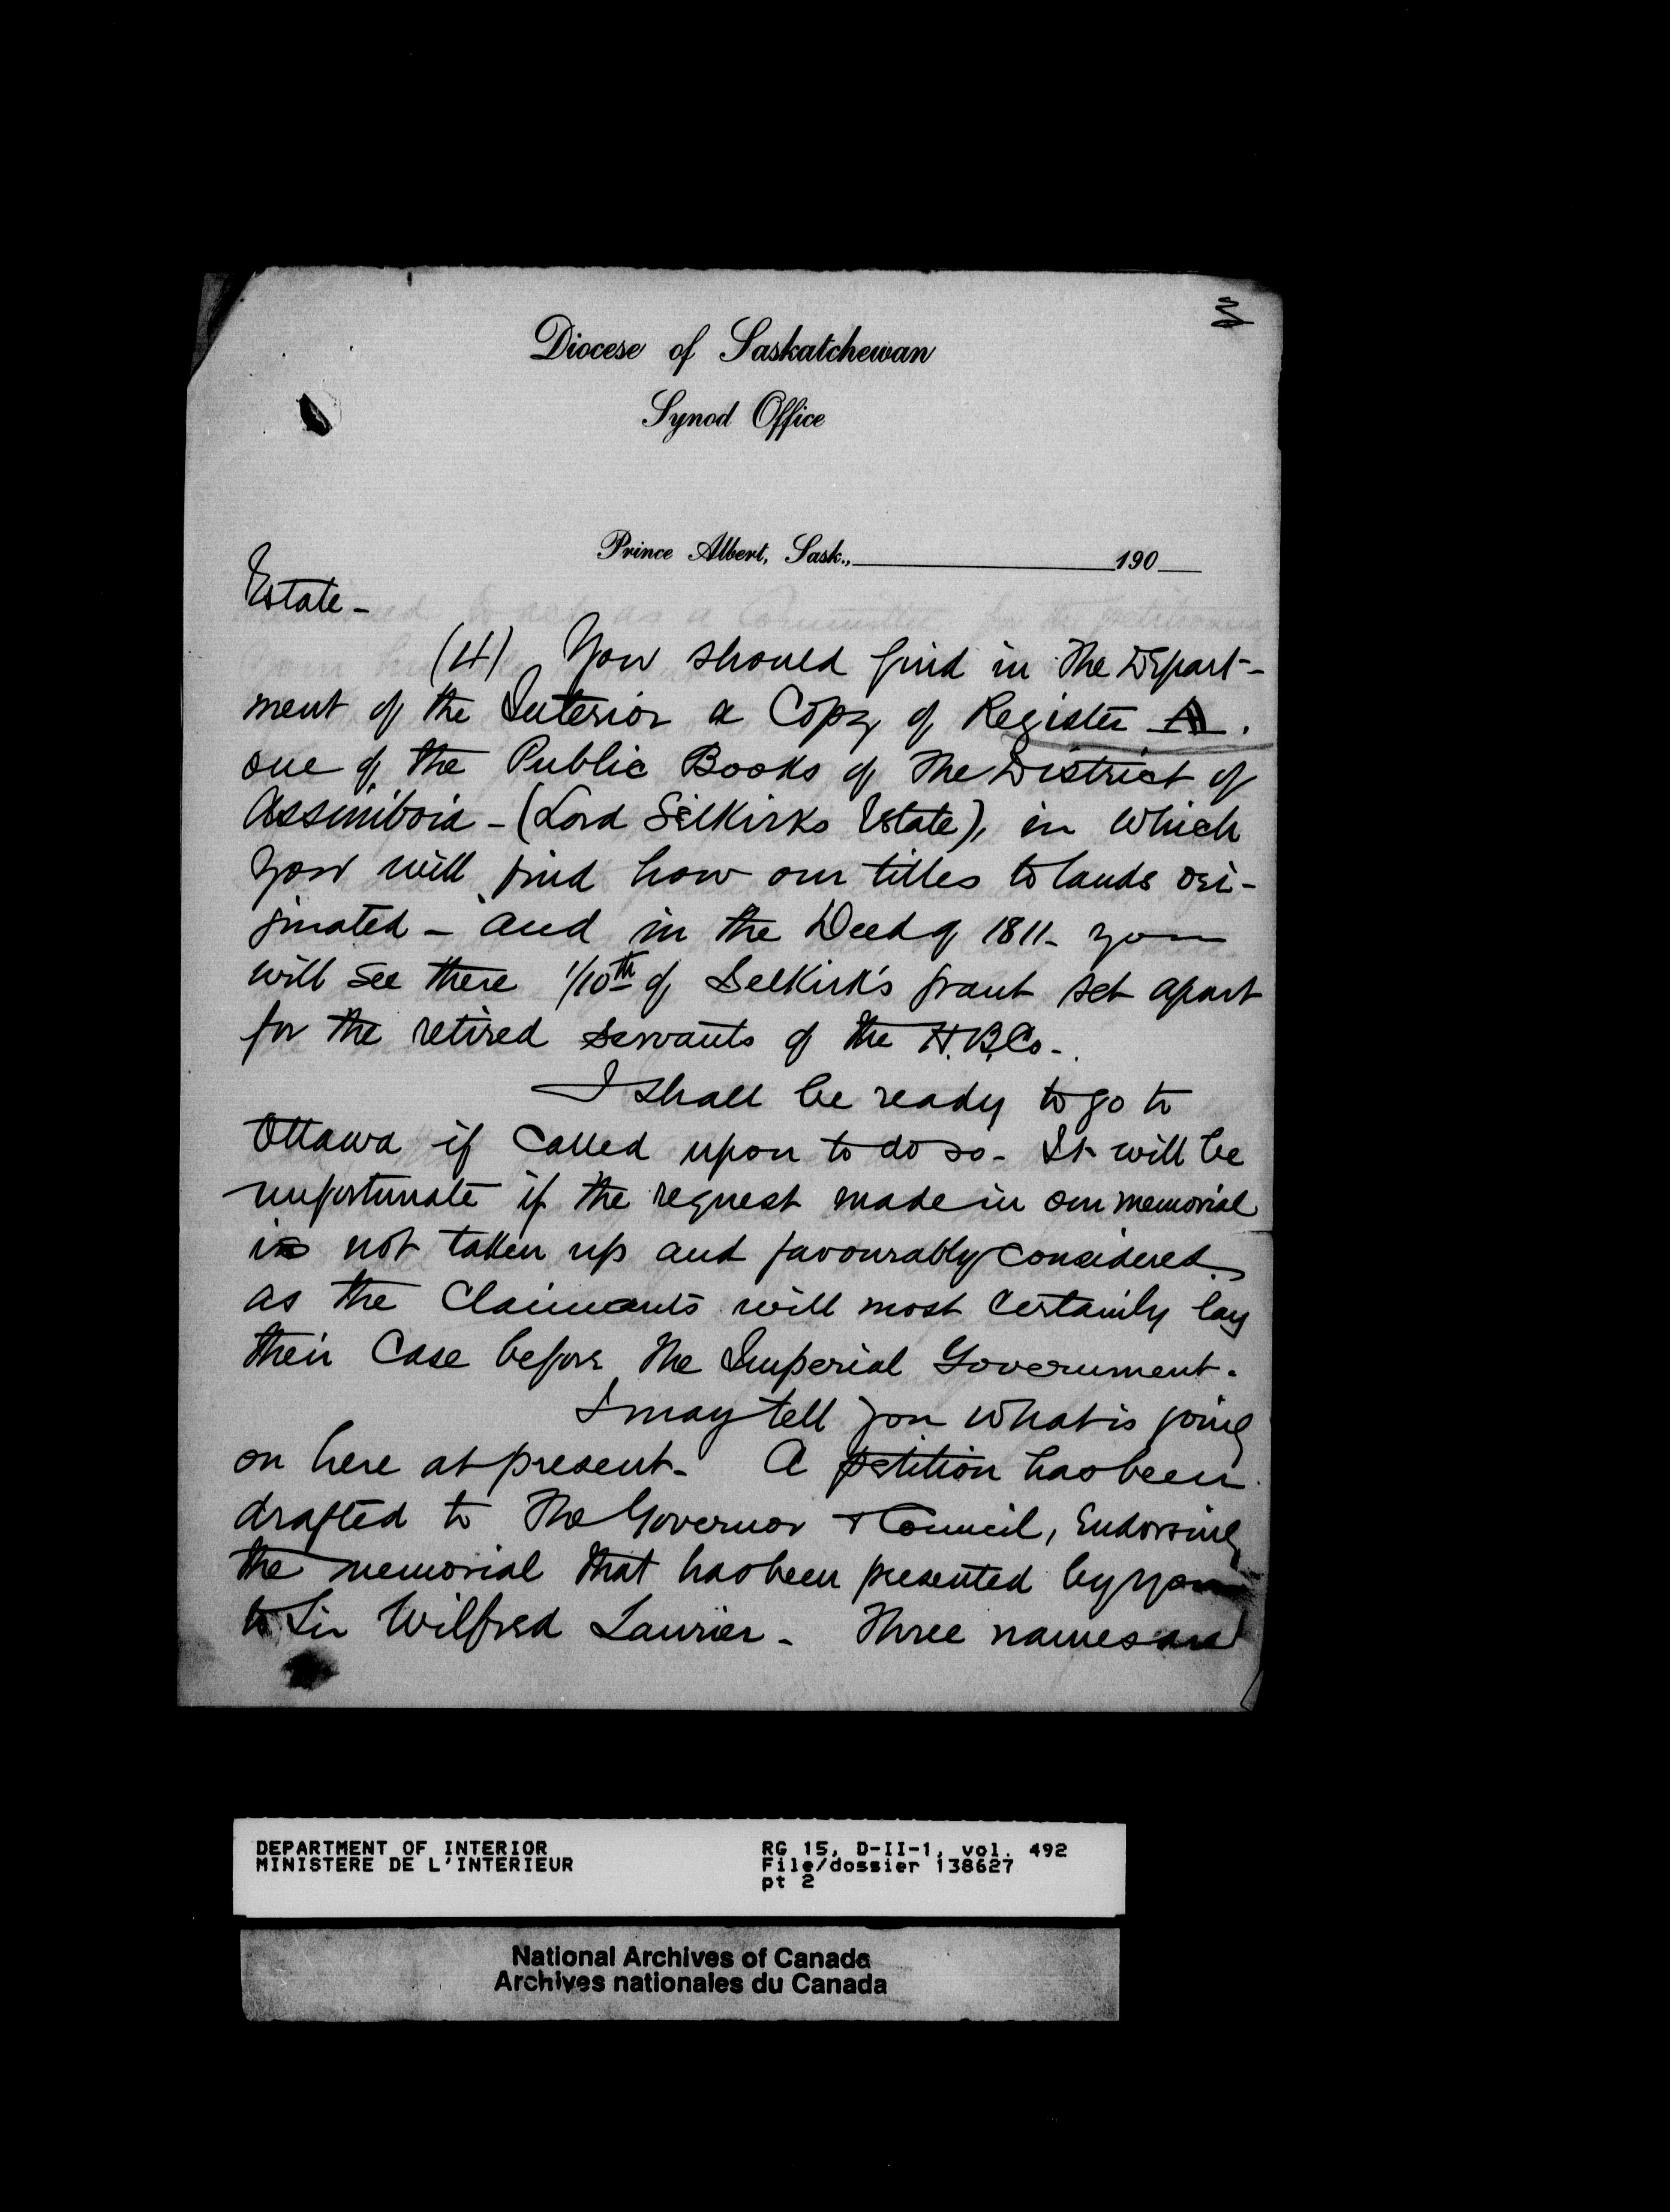 3
Diocese of Saskatchewan
Synod Office
Prince Albert, Sask., 190
Estate -
(4) You should find in the Depart-
ment of the Interior a Copy of Register A.
one of the Public Books of the District of
Assiniboia - (Lord Selkirks Estate), in which
you will find how our titles to lands ori-
ginated - and in the Deed of 1811 - you
will see there 1/10th of Selkirk's grant set apart
for the retired servants of the H.B.Co -.
I shall be ready to go to
Ottawa if called upon to do so - It will be
unfortunate if the request made in our memorial
is not taken up and favourably considered,
as the Claimants will most certainly lay
their Case before the Imperial Government.
I may tell you what is going
on here at present - A petition has been
drafted to the Governor & Council, Endorsing
the memorial that has been presented by you
to Sir Wilfred Laurier - Three names are
DEPARTMENT OF INTERIOR
MINISTERE DE L'INTERIEUR
RG 15, D-II-1, vol. 492
File/dossier 138627
pt 2
National Archives of Canada
Archives nationales du Canada